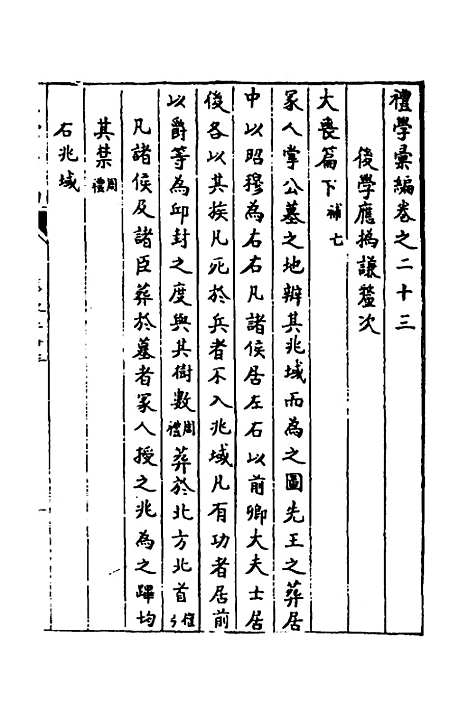 禮學彙編卷之二十三
後學應撝謙釐次
大喪篇下補七
冢人掌公墓之地辨其兆域而為之圖先王之葬居
中以昭穆為右右凡諸侯居左右以前卿大夫士居
後各以其族凡死於兵者不入兆域凡有功者居前
以爵等為邱封之度與其樹數周禮葬於北方北首
凡諸侯及諸臣葬於墓者冢人授之兆為之蹕均
其禁周禮
石兆域